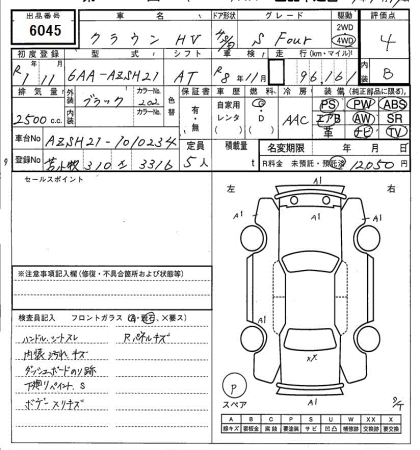 出品番号 車名 ドア形状 グレード 駆動 評価点
6045 クラウン HV 4 S Four 2WD 4WD 4
初度登録 型式 シフト 車検 走行(km・マイル) 内装
R1 11 6AA-AZSH21 AT R8年11月 96,161 B
排気量 外装 ブラック カラーNo. 202 色替 保証書 車歴 燃料 冷房 装備(純正部品に限る)
2500 c.c. 内装 カラーNo. 有・無 自家用 レンタ ( ) G・D ( ) AAC PS PW ABS
エアB AW SR
革 ナビ TV
車台No AZSH21-1010234 定員 積載量 名変期限 年 月 日
登録No 苫小牧 310 3316 5人 t R料金 未預託・預託済 12050円
セールスポイント
左 右
A1
A1 A1
A1 A1
※注意事項記入欄(修復・不具合箇所および状態等)
検査員記入 フロントガラス (A・飛石、×要ス)
ハンドル、シートスレ Rパネルキズ
内張 汚れ、キズ
ダッシュボードのり跡
下廻りペイント、S
ボデースリキズ
XX
P
スペア
A1
A B C P S U W X XX
線キズ 面板金 腐蝕 要塗装 サビ 凹凸 補修跡 要交換